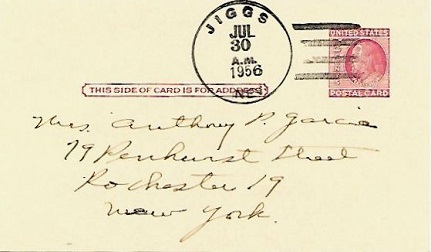 JIGGS
JUL
30
A.M.
1956
NEV
UNITED STATES
POSTAL CARD
THIS SIDE OF CARD IS FOR ADDRESS
Mrs. Anthony P. Garcia
79 Penhurst Street
Rochester 19
New York.